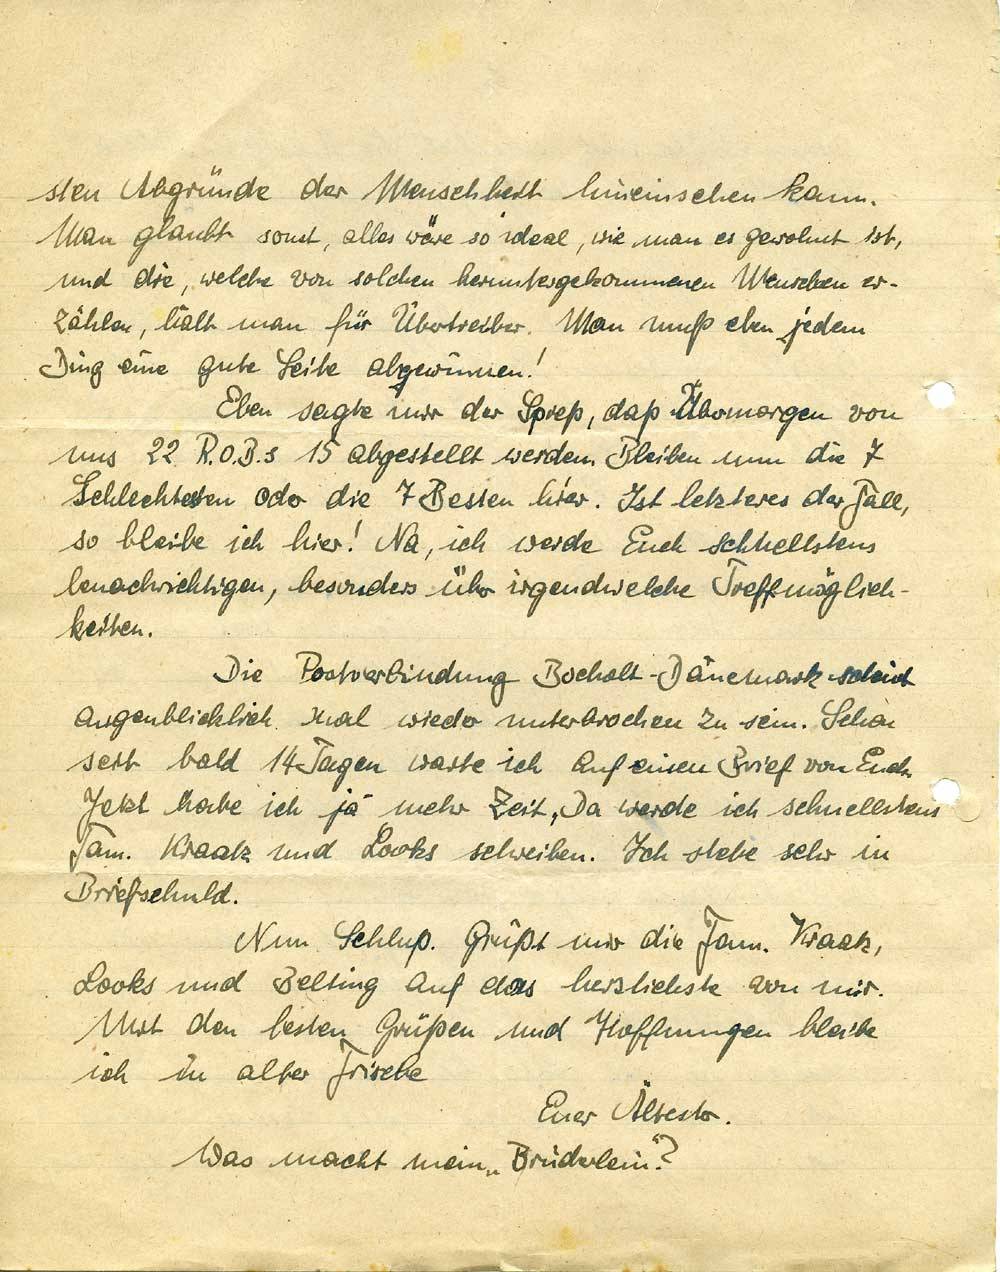 sten Abgründe der Menschheit hineinsehen kann.
Man glaubt sonst, alles wäre so ideal, wie man es gewohnt ist,
und die, welche von solchen heruntergekommenen Menschen er-
zählen, hält man für Übertreiber. Man muß eben jedem
Ding eine gute Seite abgewinnen!
Eben sagte mir der Spieß, daß Übermorgen von
uns 22 R.O.B.s 15 abgestellt werden. Bleiben nun die 7
Schlechtesten oder die 7 Besten hier. Ist letzteres der Fall,
so bleibe ich hier! Na, ich werde Euch schnellstens
benachrichtigen, besonders über irgendwelche Treffmöglich-
keiten.
Die Postverbindung Bocholt-Dänemark scheint
augenblicklich mal wieder unterbrochen zu sein. Schon
seit bald 14 Tagen warte ich auf einen Brief von Euch.
Jetzt habe ich ja mehr Zeit, Da werde ich schnellstens
Fam. Kraatz und Looks schreiben. Ich stehe sehr in
Briefschuld.
Nun Schluß. Grüßt mir die Fam. Kraatz,
Looks und Belting auf das herzlichste von mir.
Mit den besten Grüßen und Hoffnungen bleibe
ich in alter Frische
Euer Ältester.
Was macht mein „Brüderlein"?